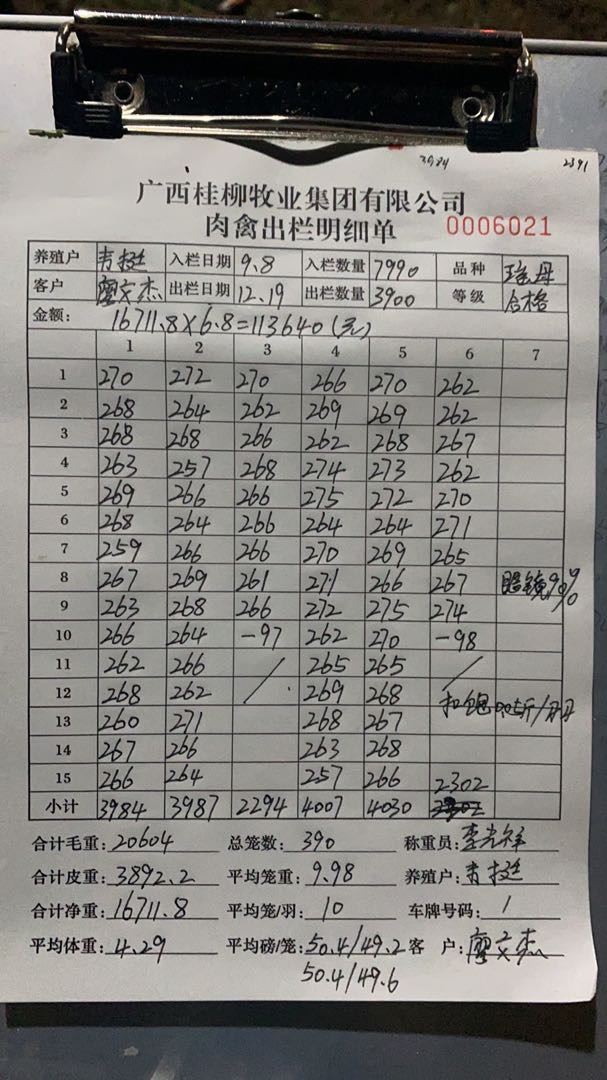 3984 2391
广西桂柳牧业集团有限公司
肉禽出栏明细单 0006021
养殖户 韦挺 入栏日期 9.8 入栏数量 7990 品种 瑶丹
客户 廖文杰 出栏日期 12.19 出栏数量 3900 等级 合格
金额: 16711.8×6.8=113640(元)
1 2 3 4 5 6 7
1 270 272 270 266 270 262
2 268 264 262 269 269 262
3 268 268 266 262 268 267
4 263 257 268 274 273 262
5 269 266 266 275 272 270
6 268 264 266 264 264 271
7 259 266 266 270 269 265
8 267 269 261 271 266 267 眼镜90%
9 263 268 266 272 275 274
10 266 264 -97 262 270 -98
11 262 266 / 265 265 /
12 268 262 / 269 268 扣饱0.05斤/
13 260 271 268 267
14 267 266 263 268
15 266 264 257 266 2302
小计 3984 3987 2294 4007 4030
合计毛重: 20604 总笼数: 390 称重员: 李光祥
合计皮重: 3892.2 平均笼重: 9.98 养殖户: 韦挺
合计净重: 16711.8 平均笼/羽: 10 车牌号码: 1
平均体重: 4.29 平均磅/笼: 50.4/49.2 客 户: 廖文杰
50.4/49.6